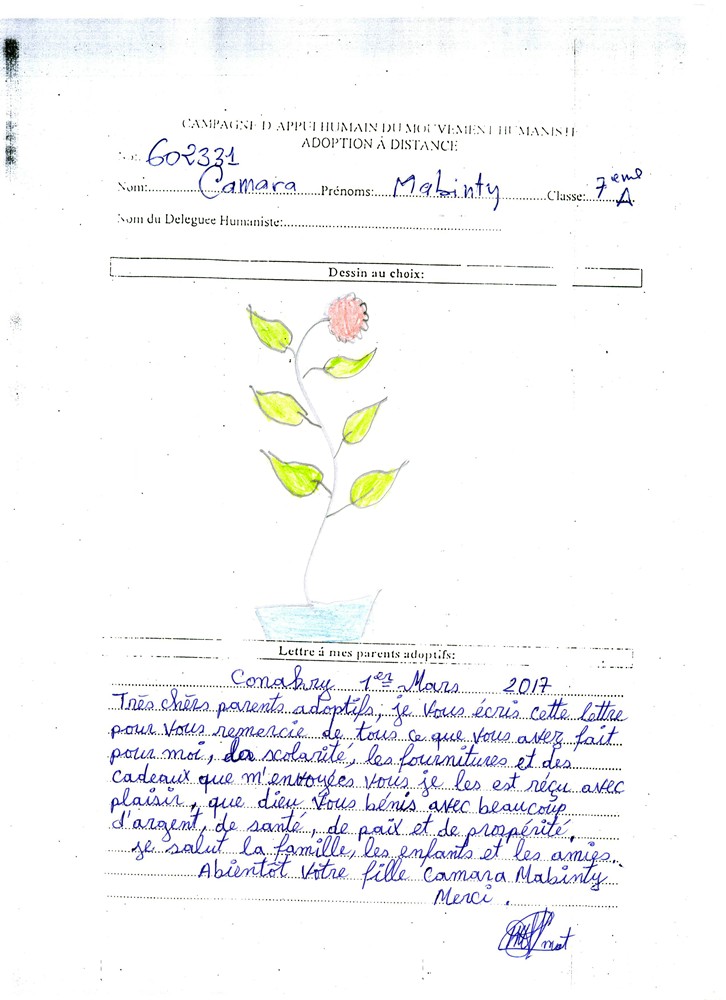 CAMPAGNE D'APPUI HUMAIN DU MOUVEMENT HUMANISTE
ADOPTION À DISTANCE
No: 602331
Nom: Camara Prénoms: Mabinty Classe: 7ième A
Nom du Deleguee Humaniste:
Dessin au choix:
Lettre à mes parents adoptifs:
Conakry 1er Mars 2017
Très chèrs parents adoptifs, je vous écris cette lettre
pour vous remercie de tous ce que vous avez fait
pour moi, la scolarité, les fournitures et des
cadeaux que m'envoyées vous je les est réçu avec
plaisir, que dieu vous bénis avec beaucoup
d'argent, de santé, de paix et de prospérité,
je salut la famille, les enfants et les amies.
Abientôt votre fille Camara Mabinty
Merci.